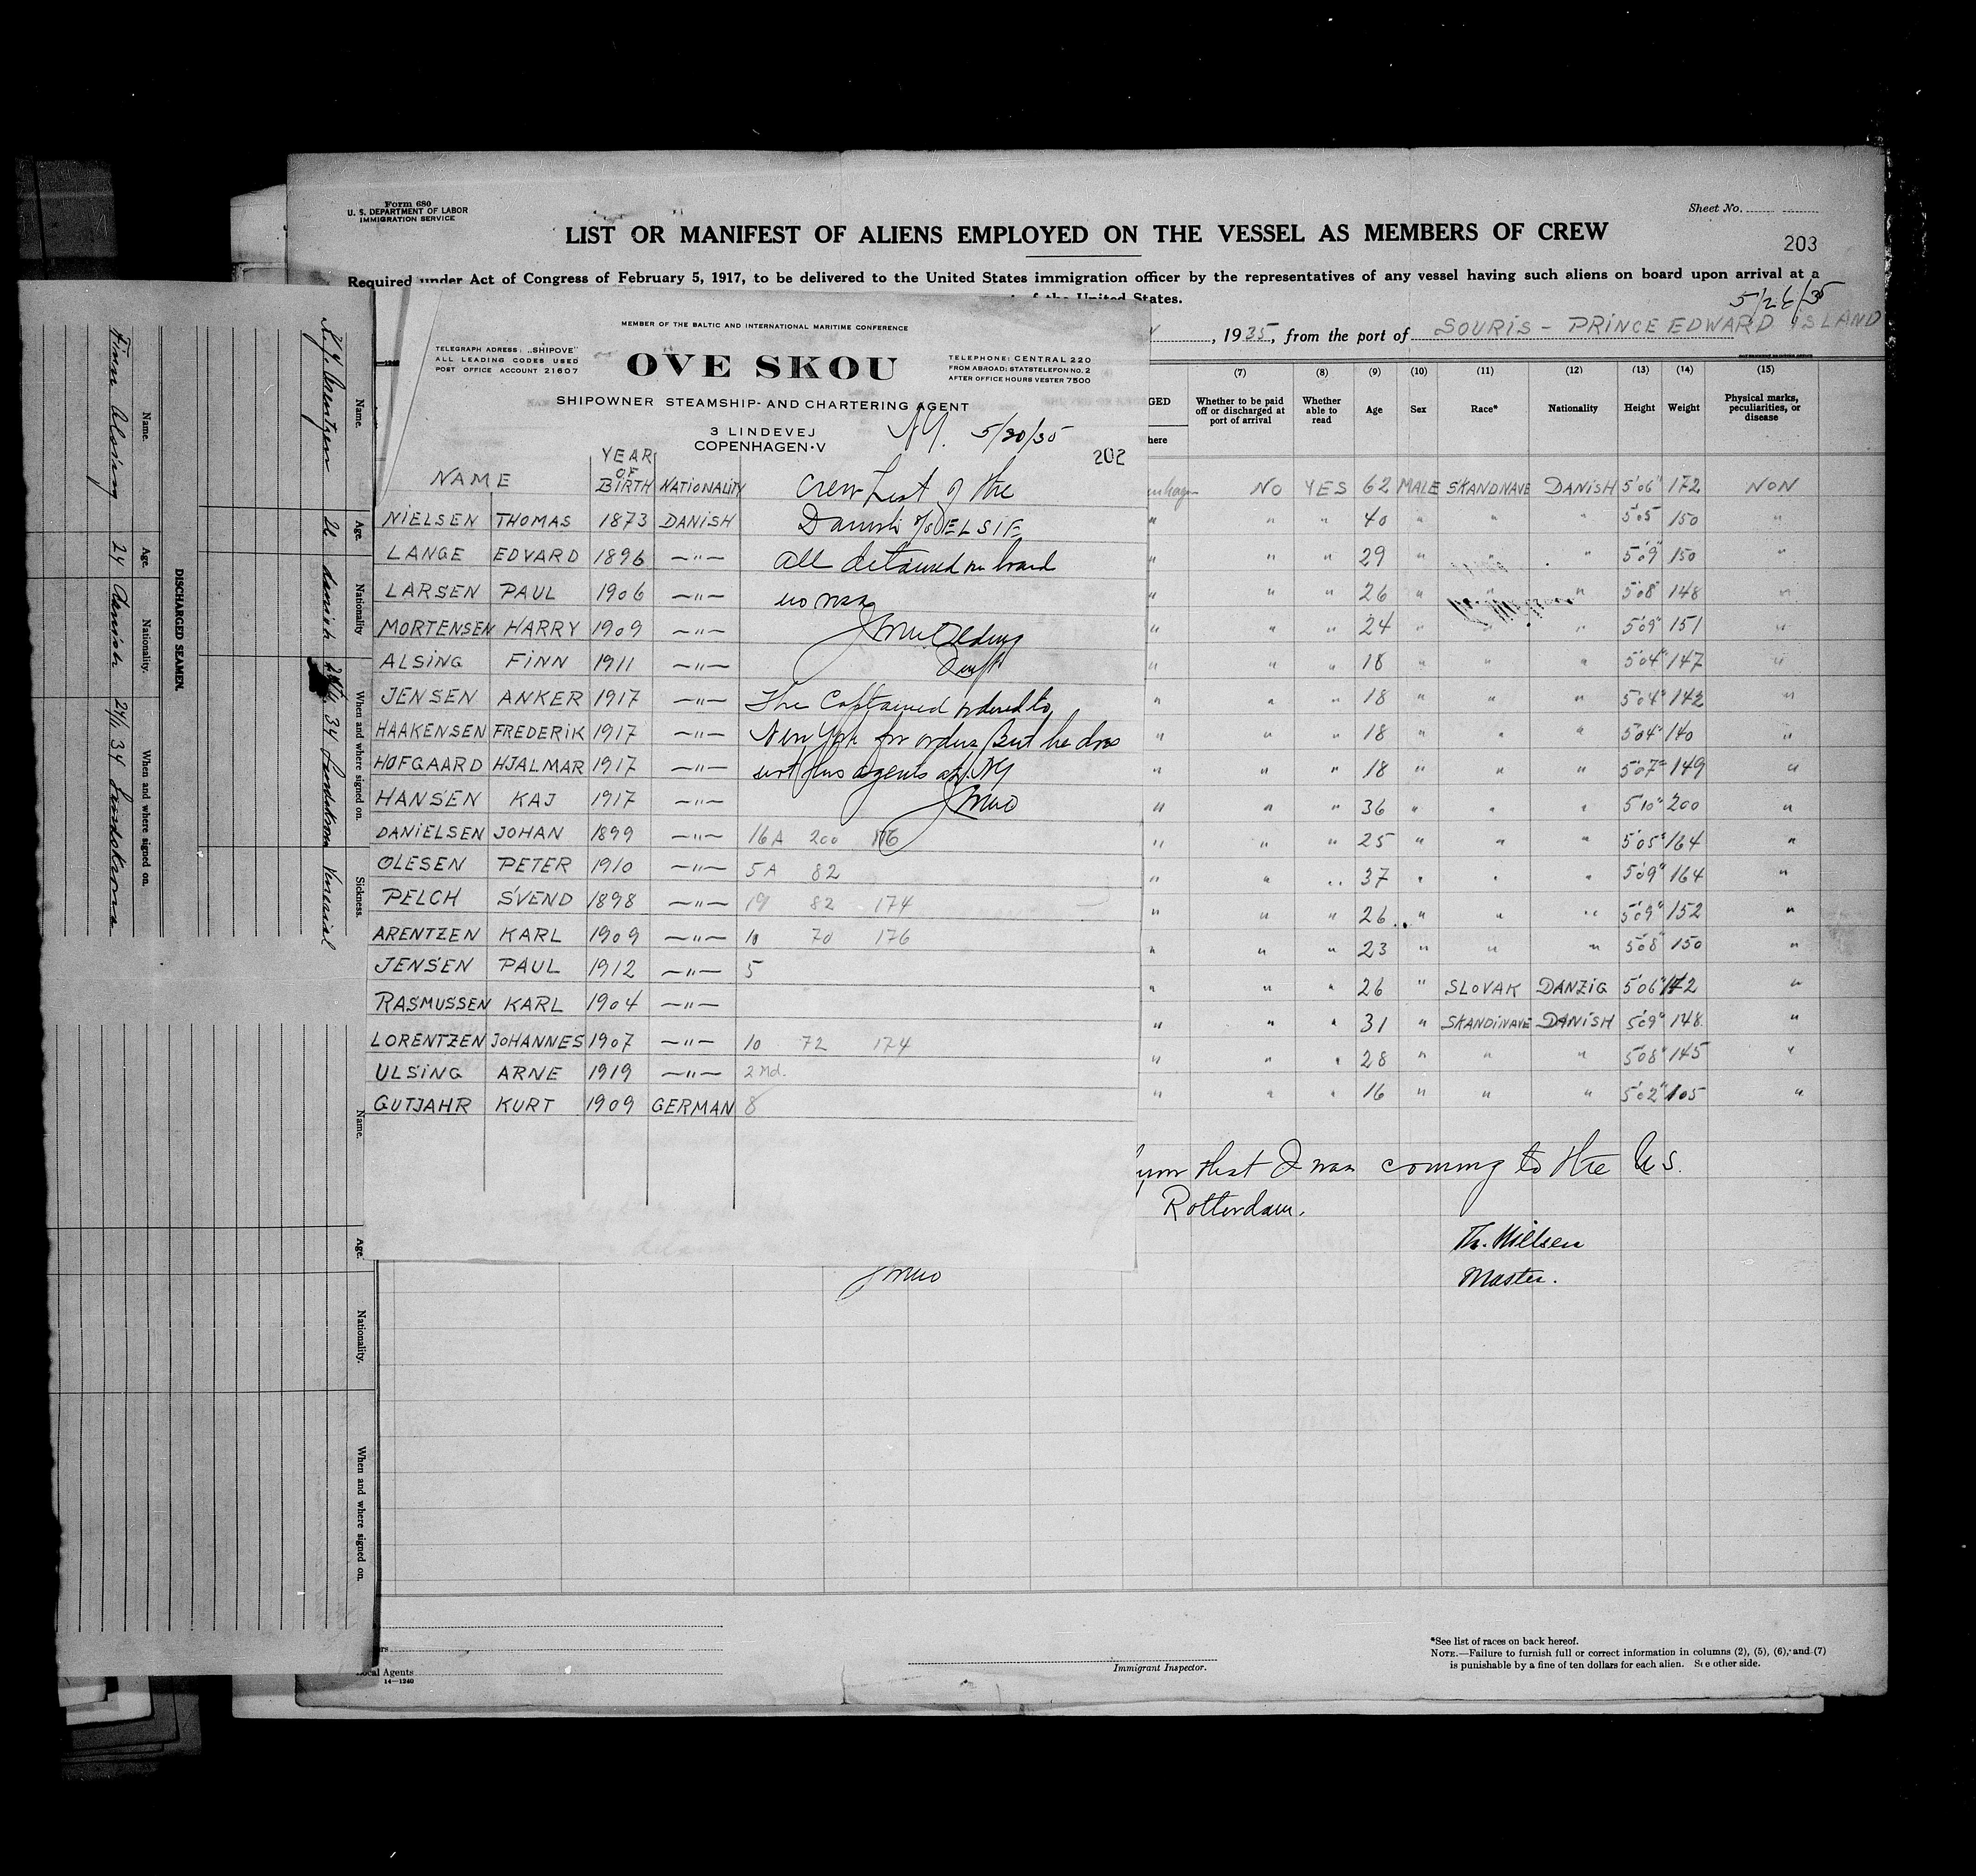 Form 680
U. S. DEPARTMENT OF LABOR
IMMIGRATION SERVICE
Sheet No.
LIST OR MANIFEST OF ALIENS EMPLOYED ON THE VESSEL AS MEMBERS OF CREW
203
Required under Act of Congress of February 5, 1917, to be delivered to the United States immigration officer by the representatives of any vessel having such aliens on board upon arrival at a
of the United States.
5/26/35
, 1935, from the port of SOURIS - PRINCE EDWARD ISLAND
MEMBER OF THE BALTIC AND INTERNATIONAL MARITIME CONFERENCE
TELEGRAPH ADRESS: „SHIPOVE"
ALL LEADING CODES USED
POST OFFICE ACCOUNT 21607
OVE SKOU
TELEPHONE: CENTRAL 220
FROM ABROAD: STATSTELEFON NO. 2
AFTER OFFICE HOURS VESTER 7500
SHIPOWNER STEAMSHIP- AND CHARTERING AGENT
3 LINDEVEJ
COPENHAGEN·V
NY. 5/30/35
202
NAME YEAR OF BIRTH NATIONALITY
Crew List of the
NIELSEN THOMAS 1873 DANISH Danish ELSIE
LANGE EDVARD 1896 —"— all detained on board
LARSEN PAUL 1906 —"—
MORTENSEN HARRY 1909 —"—
ALSING FINN 1911 —"—
JENSEN ANKER 1917 —"— The Captained ordered to
HAAKENSEN FREDERIK 1917 —"— New York for orders But he does
HOFGAARD HJALMAR 1917 —"— agents at NY
HANSEN KAJ 1917 —"—
DANIELSEN JOHAN 1899 —"— 16A 200 176
OLESEN PETER 1910 —"— 5A 82
PELCH SVEND 1898 —"— 19 82 174
ARENTZEN KARL 1909 —"— 10 70 176
JENSEN PAUL 1912 —"— 5
RASMUSSEN KARL 1904 —"—
LORENTZEN JOHANNES 1907 —"— 10 72 174
ULSING ARNE 1919 —"— 2 Md.
GUTJAHR KURT 1909 GERMAN 8
(7) (8) (9) (10) (11) (12) (13) (14) (15)
GED
here
Whether to be paid off or discharged at port of arrival
Whether able to read
Age
Sex
Race*
Nationality
Height
Weight
Physical marks, peculiarities, or disease
NO YES 62 MALE SKANDINAVE DANISH 5'06" 172 NON
" " " 40 " " " 5'05" 150 "
" " " 29 " " " 5'09" 150 "
" " " 26 " " " 5'08" 148 "
" " " 24 " " " 5'09" 151 "
" " " 18 " " " 5'04" 147 "
" " " 18 " " " 5'04" 142 "
" " " 18 " " " 5'04" 140 "
" " " 18 " " " 5'07" 149 "
" " " 36 " " " 5'10" 200 "
" " " 25 " " " 5'05" 164 "
" " " 37 " " " 5'09" 164 "
" " " 26 " " " 5'09" 152 "
" " " 23 " " " 5'08" 150 "
" " " 26 " SLOVAK DANZIG 5'06" 172 "
" " " 31 " SKANDINAVE DANISH 5'09" 148 "
" " " 28 " " " 5'08" 145 "
" " " 16 " " " 5'02" 105 "
that I was coming to the U.S.
Rotterdam.
Th. Nielsen
Master.
Local Agents
14—1240
Immigrant Inspector.
*See list of races on back hereof.
NOTE.—Failure to furnish full or correct information in columns (2), (5), (6), and (7)
is punishable by a fine of ten dollars for each alien. See other side.
Name. Age. Nationality When and where signed on. Sickness.
Arentzen danish 34 Venerial
Name. Age. Nationality. When and where signed on.
DISCHARGED SEAMEN.
Name. Age. Nationality. When and where signed on.
Finn Alsing 24 danish 24/11 34 Landskrona